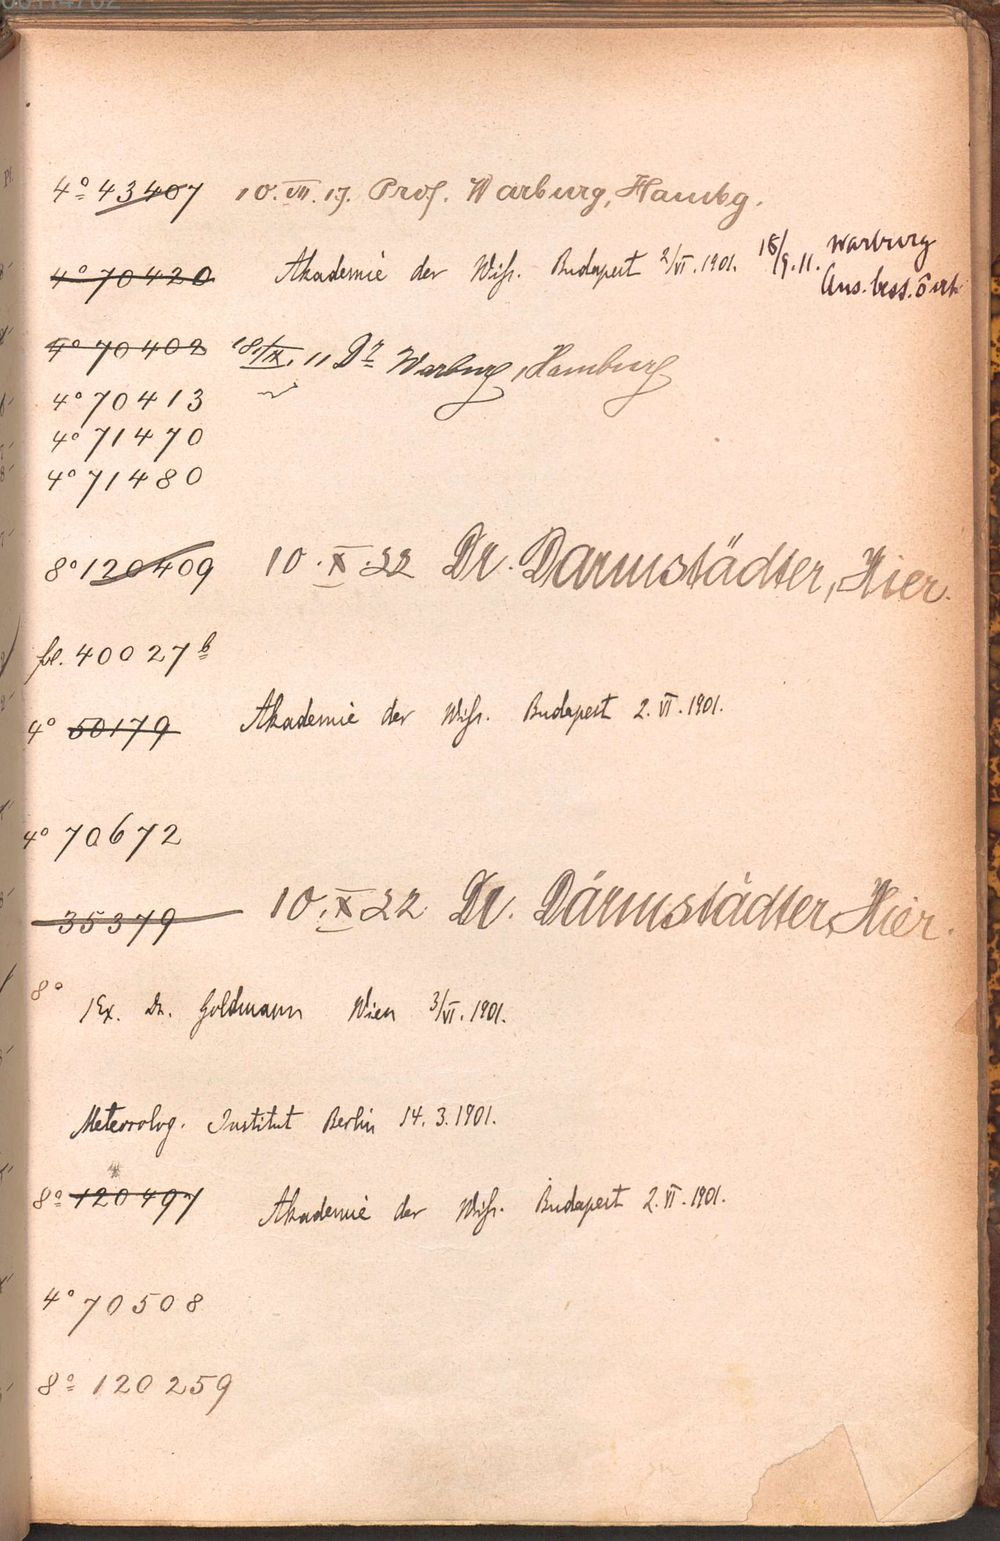 4° 43407 10. VII. 17. Prof. Warburg, Hambg.
4° 70420 Akademie der Wiss. Budapest 2/VI. 1901. 18/9. 11. Warburg
4° 70402 18/IX. 11 Dr Warburg, Hamburg
4° 70413
4° 71470
4° 71480
8° 120409 10. X. 22 Dr. Darmstädter, Hier.
fol. 40027 b
4° 50179 Akademie der Wiss. Budapest 2. VI. 1901.
4° 70672
35379 10. X 22 Dr. Darmstädter, Hier.
8° 1 Ex. Dr. Goldmann Wien 3/VI. 1901.
Meteorolog. Institut Berlin 14. 3. 1901.
8° 120497 Akademie der Wiss. Budapest 2. VI. 1901.
4° 70508
8° 120259